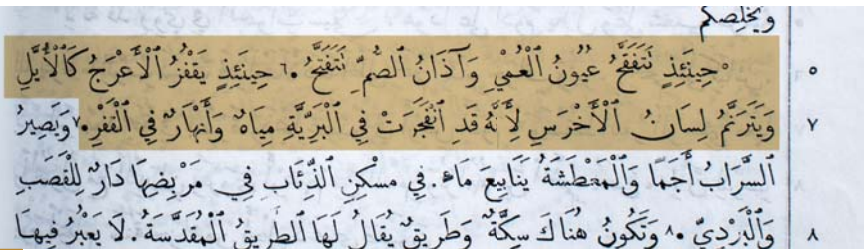 وَيُخَلِّصُكُمْ
٥ °حِينَئِذٍ تَتَفَقَّحُ عُيُونُ ٱلْعُمْيِ وَآذَانُ ٱلصُّمِّ تَتَفَتَّحُ. ٦ حِينَئِذٍ يَقْفِزُ ٱلْأَعْرَجُ كَٱلْأَيِّلِ
٧ وَيَتَرَنَّمُ لِسَانُ ٱلْأَخْرَسِ لِأَنَّهُ قَدِ ٱنْفَجَرَتْ فِي ٱلْبَرِّيَّةِ مِيَاهٌ وَأَنْهَارٌ فِي ٱلْقَفْرِ. ٧ وَيَصِيرُ
ٱلسَّرَابُ أَجَمًا وَٱلْمَعْطَشَةُ يَنَابِيعَ مَاءٍ. فِي مَسْكِنِ ٱلذِّئَابِ فِي مَرْبِضِهَا دَارٌ لِلْقَصَبِ
٨ وَٱلْبَرْدِيِّ. ٨ وَتَكُونُ هُنَاكَ سِكَّةٌ وَطَرِيقٌ يُقَالُ لَهَا ٱلطَّرِيقُ ٱلْمُقَدَّسَةُ. لَا يَعْبُرُ فِيهَا